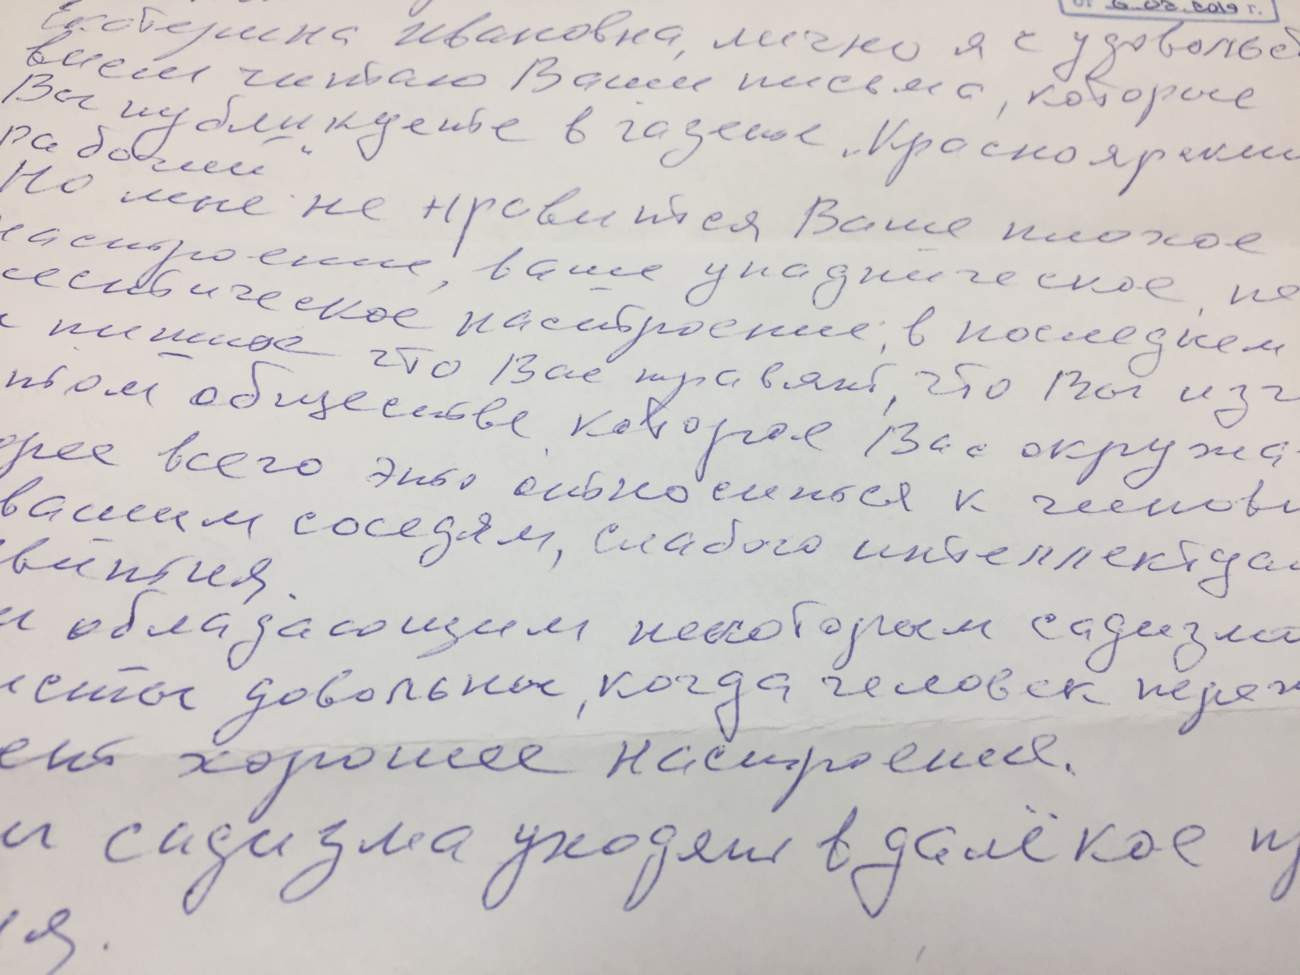 от 6.03.2019 г.
Екатерина Ивановна, лично я с удовольст
вием читаю Ваши письма, которые
Вы публикуете в газете „Красноярский
рабочий"
Но мне не нравится Ваше плохое
настроение, ваше упадническое, пе
ссимистическое настроение, в последнем
пишите что Вас травят, что Вы изг
этом обществе которое Вас окружа
орее всего это относиться к чиновн
вашим соседям, слабого интеллектуал
звития.
и обладающим некоторым садизмо
исты довольны, когда человек переж
ент хорошее настроения.
и садизма уходят в далёкое пр
ия.